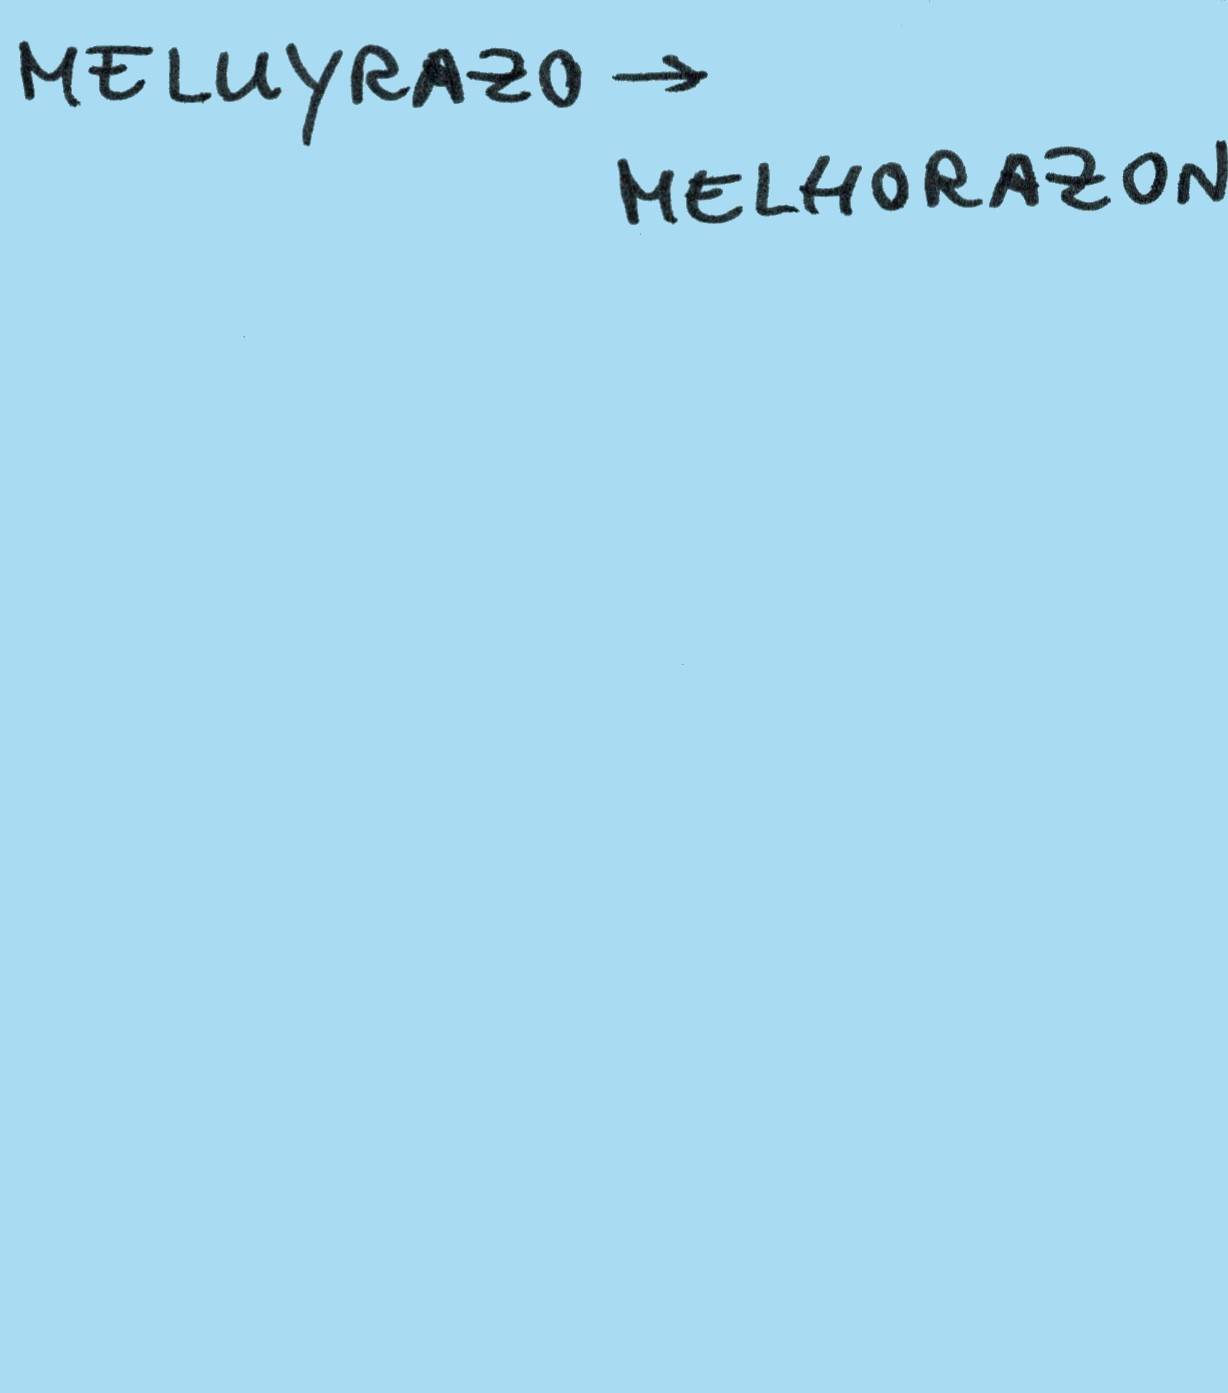 MELUYRAZO →
MELHORAZON